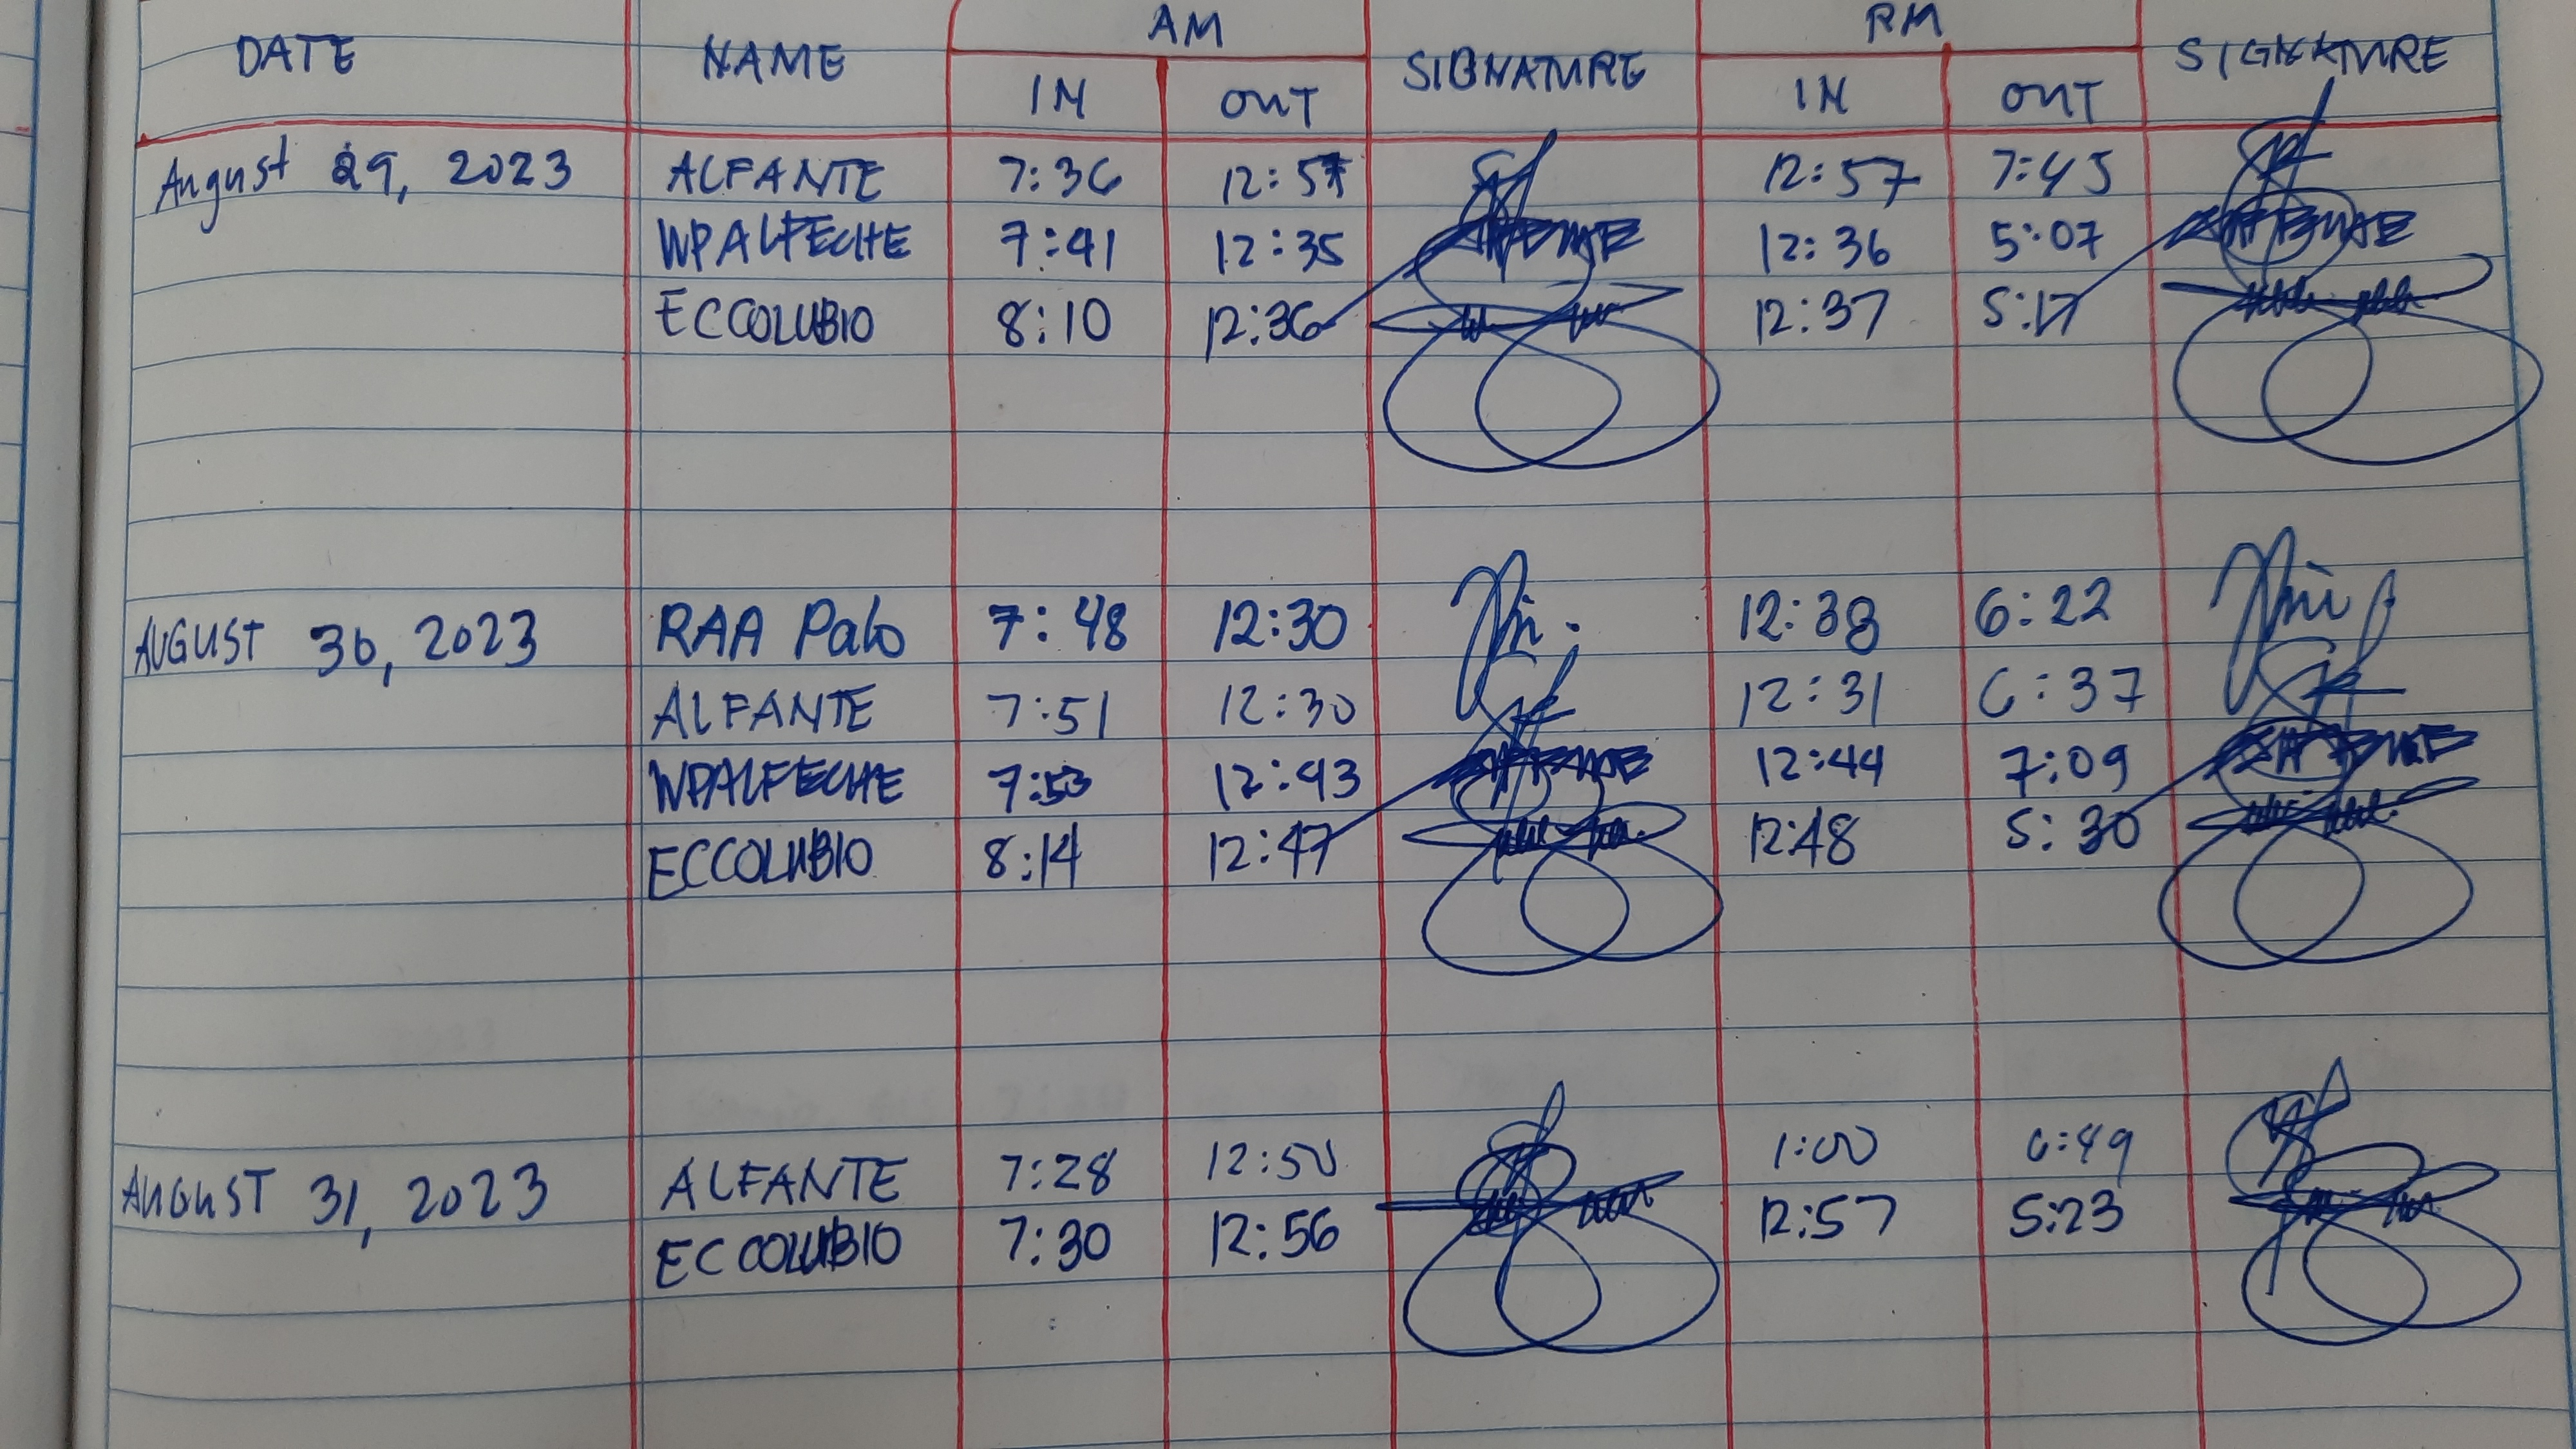 DATE NAME AM SIGNATURE PM SIGNATURE
IN OUT IN OUT
August 29, 2023 ALFANTE 7:36 12:57 12:57 7:45
WPALFECHE 7:41 12:35 12:36 5:07
ECCOLUBIO 8:10 12:36 12:37 5:17
AUGUST 30, 2023 RAA Palo 7:48 12:30 12:38 6:22
ALFANTE 7:51 12:30 12:31 6:37
WPALFECHE 7:53 12:43 12:44 7:09
ECCOLUBIO 8:14 12:47 12:48 5:30
AUGUST 31, 2023 ALFANTE 7:28 12:50 1:00 6:49
ECCOLUBIO 7:30 12:56 12:57 5:23